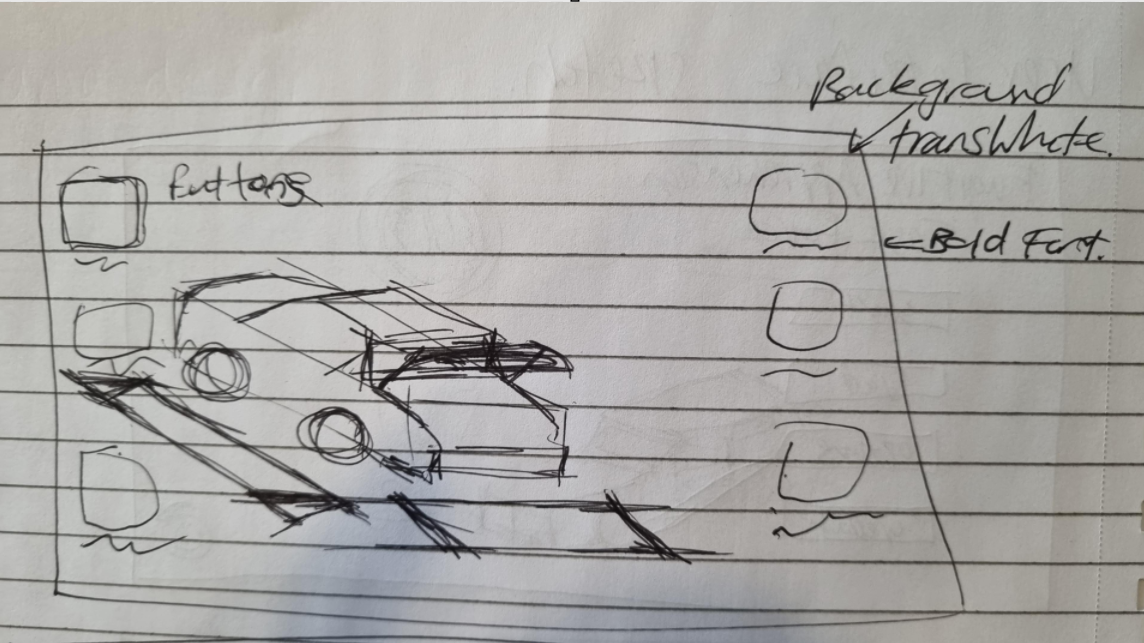 Background
transWhite.
Buttons
←Bold Font.